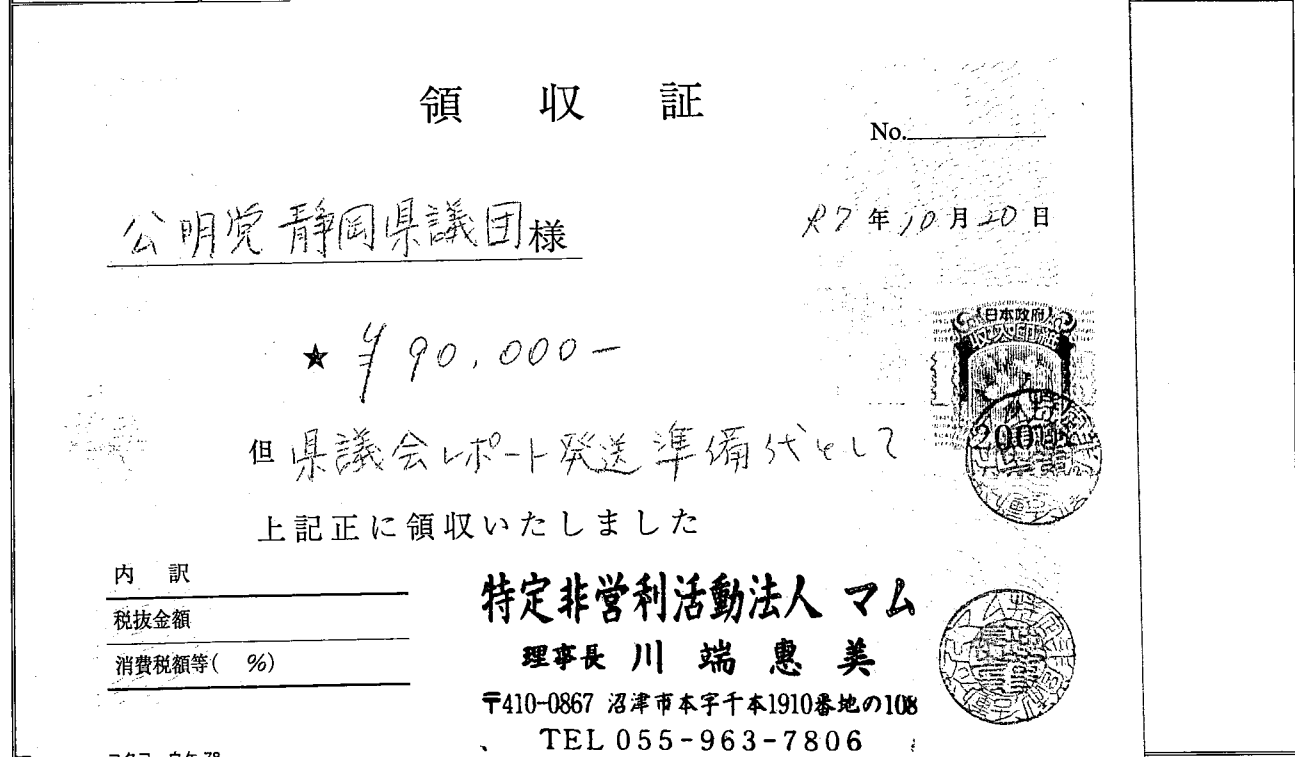 領収証
No.
公明党静岡県議団様
R7年10月20日
★ ¥90,000-
日本政府
収入印紙
200
但 県議会レポート発送準備代として
上記正に領収いたしました
内訳
税抜金額
消費税額等( %)
特定非営利活動法人 マム
理事長 川端恵美
〒410-0867 沼津市本字千本1910番地の108
TEL 055-963-7806